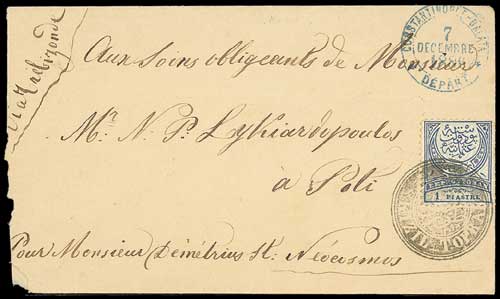 Via Trébizonde
CONSTANTINOPLE-GALATA
7
DECEMBRE
DÉPART
Aux soins obligeants de Monsieur
Mr. N. P. Lykiardopoulos
à Poti
1 PIASTRE
Pour Monsieur Démétrius St. Néocosmos